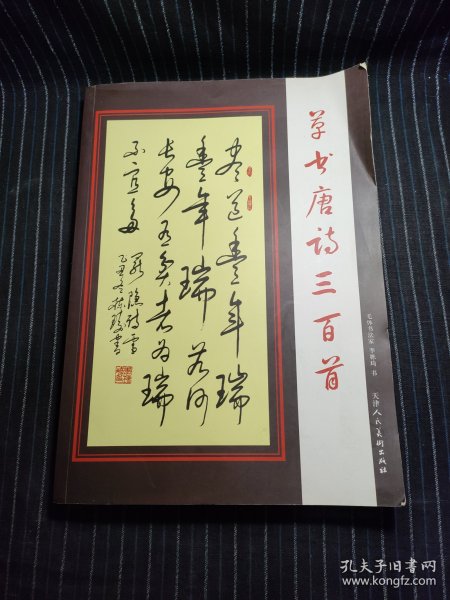 草书唐诗三百首
毛体书法家 书
天津人民美術出版社
尽道丰年瑞
丰年瑞若何
长安有贫者为瑞
不宜多
罗隐诗雪
孔夫子旧书网
www.kongfz.com